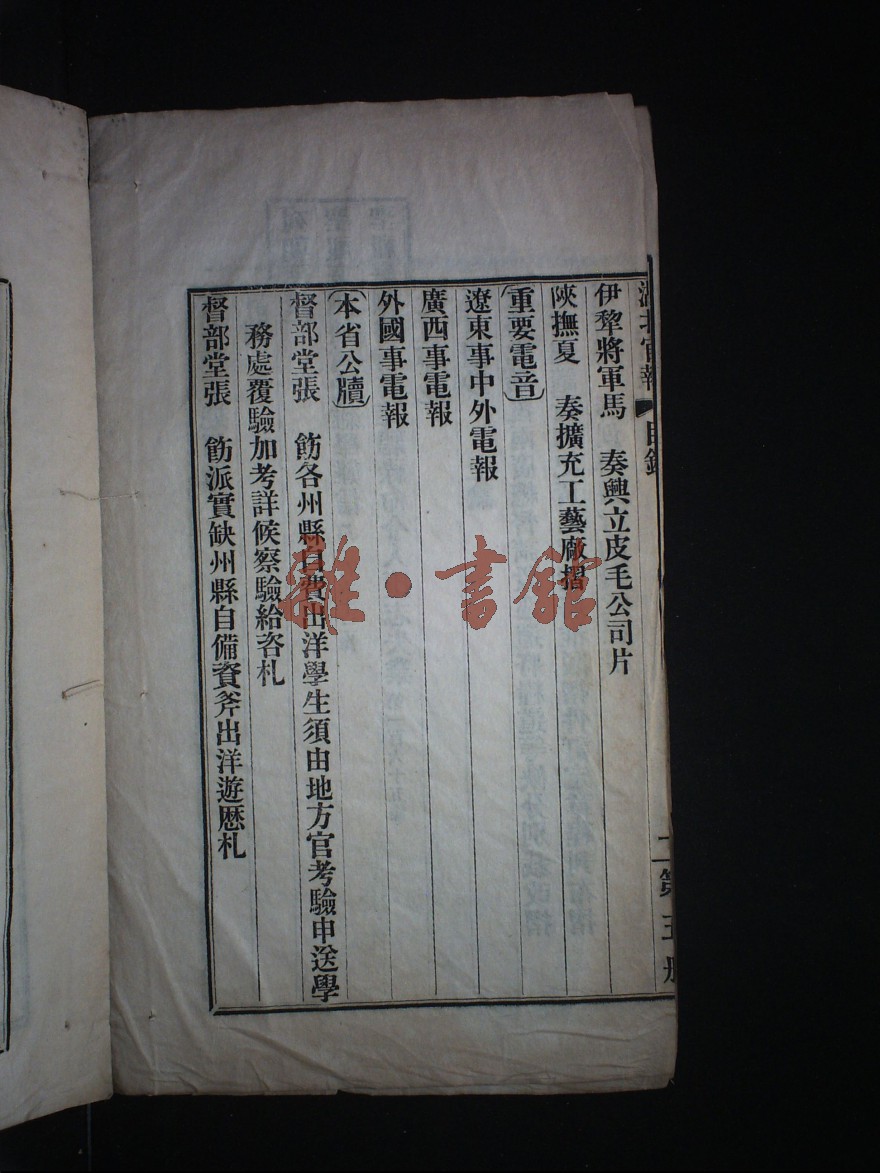 湖北官報 目錄 二 第五册
伊犂將軍馬 奏興立皮毛公司片
陝撫夏 奏擴充工藝廠摺
重要電音
遼東事中外電報
廣西事電報
外國事電報
本省公牘
督部堂張 飭各州縣自費出洋學生須由地方官考驗申送學
務處覆驗加考詳候察驗給咨札
督部堂張 飭派實缺州縣自備資斧出洋遊歷札
雜·書館